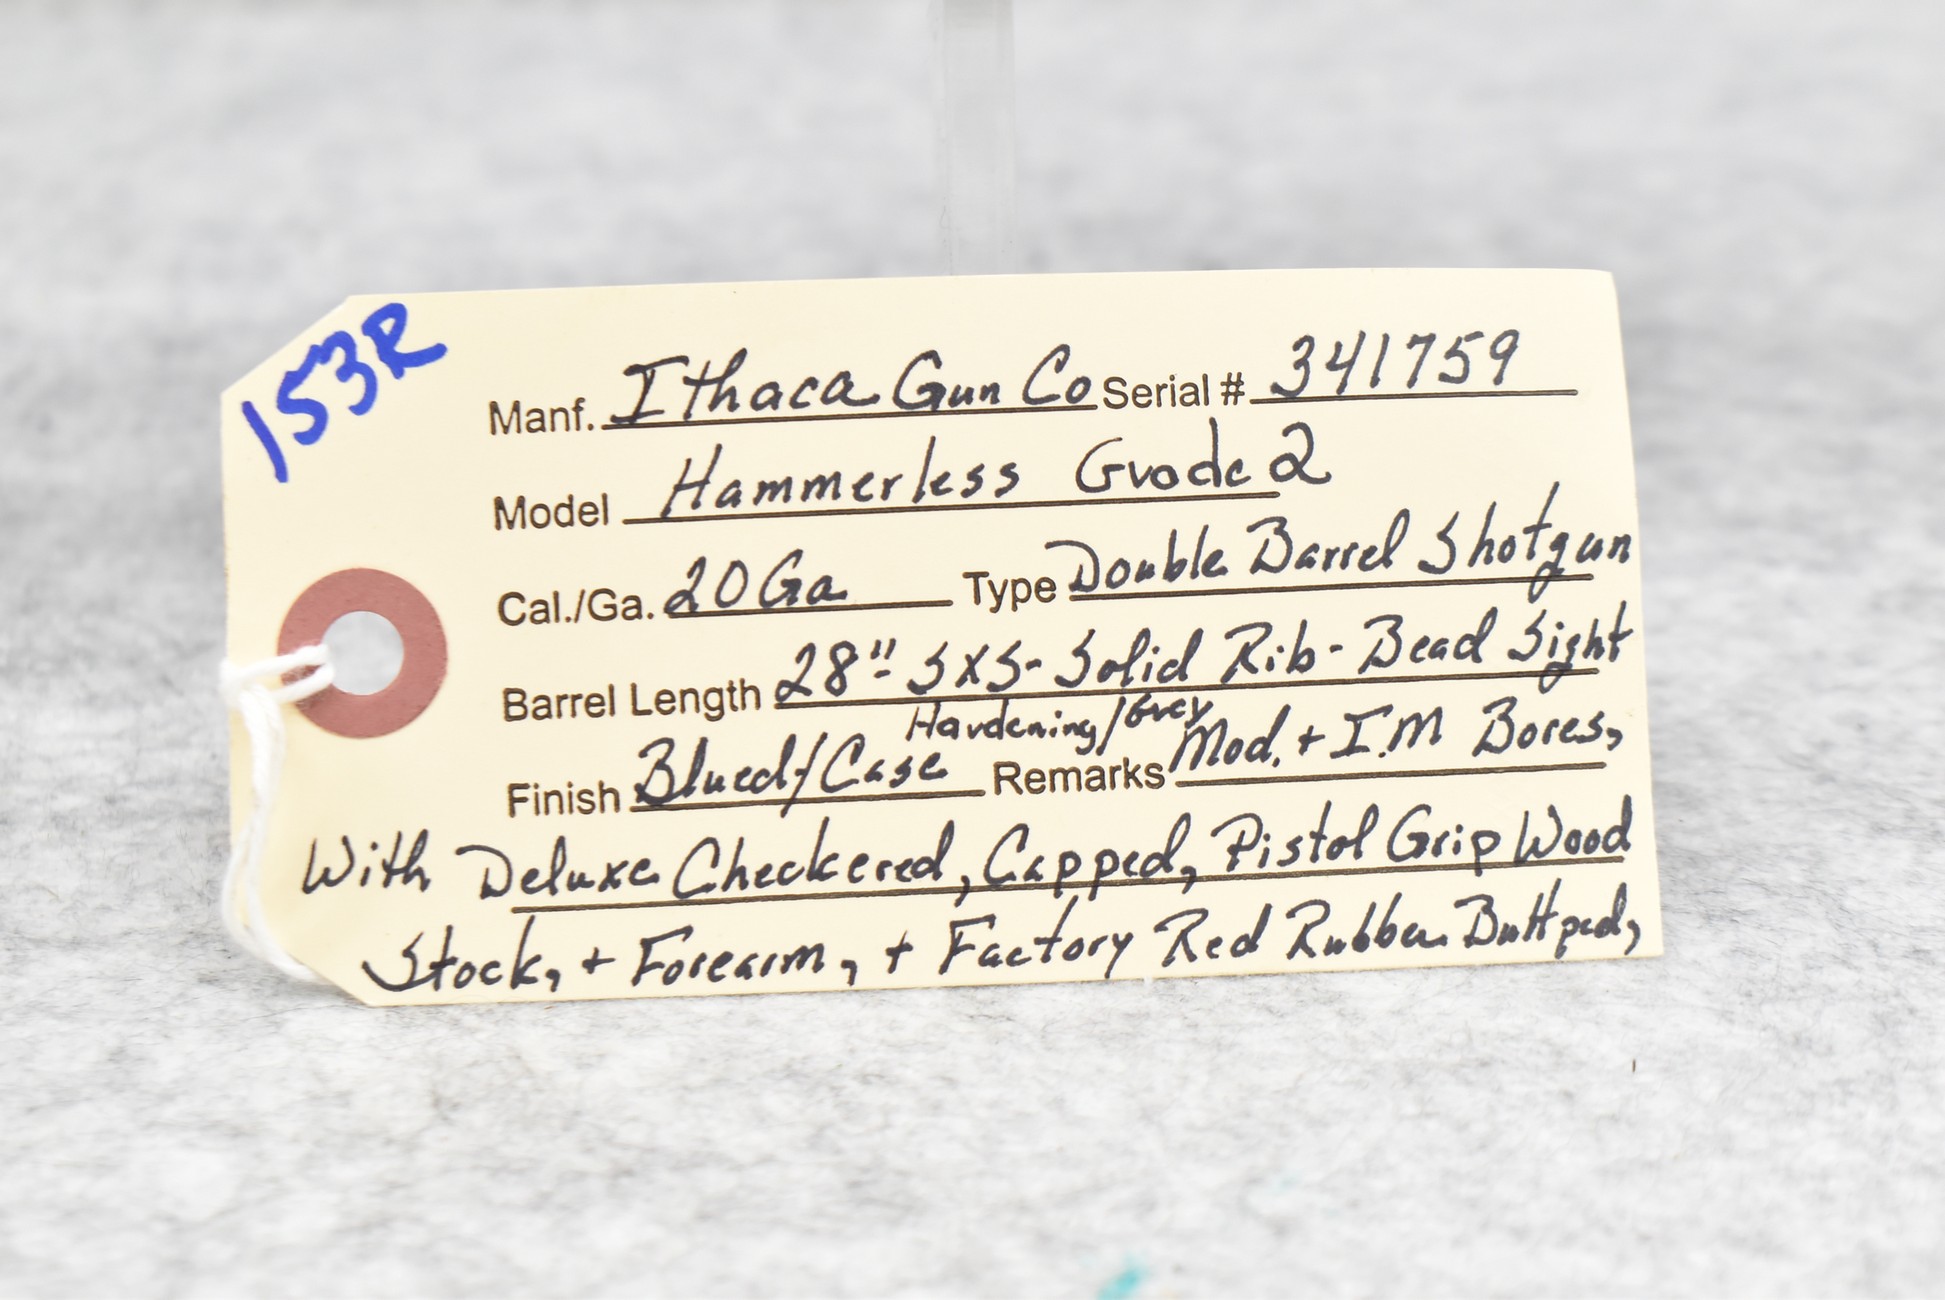 153R
Manf. Ithaca Gun Co Serial # 341759
Model Hammerless Grade 2
Cal./Ga. 20 Ga Type Double Barrel Shotgun
Barrel Length 28" SXS - Solid Rib - Bead Sight
Hardening/Grey
Finish Blued/Case Remarks Mod. + I.M Bores,
With Deluxe Checkered, Capped, Pistol Grip Wood
Stock, + Forearm, + Factory Red Rubber Buttpad,